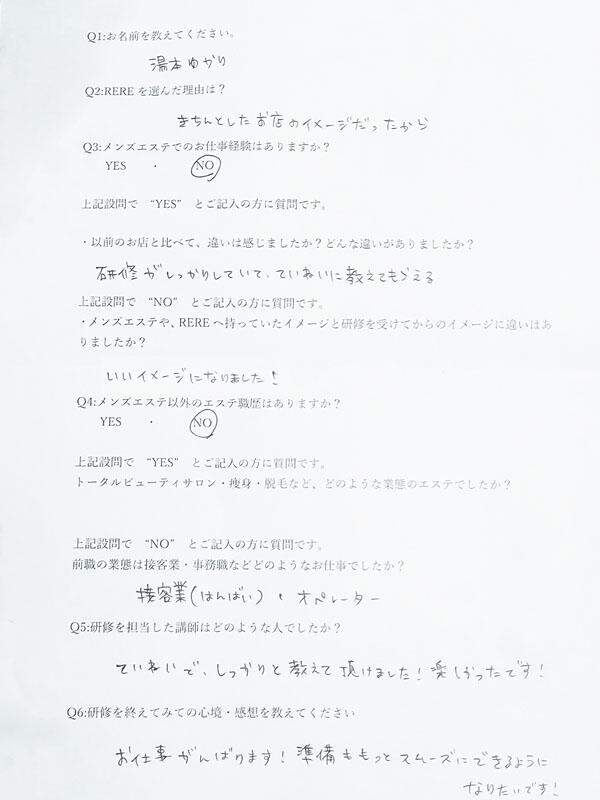 Q1:お名前を教えてください。
湯本ゆかり
Q2:RERE を選んだ理由は？
きちんとしたお店のイメージだったから
Q3:メンズエステでのお仕事経験はありますか？
YES ・ NO
上記設問で “YES” とご記入の方に質問です。
・以前のお店と比べて、違いは感じましたか？どんな違いがありましたか？
研修がしっかりしていて、ていねいに教えてもらえる
上記設問で “NO” とご記入の方に質問です。
・メンズエステや、RERE へ持っていたイメージと研修を受けてからのイメージに違いはあ
りましたか？
いいイメージになりました！
Q4:メンズエステ以外のエステ職歴はありますか？
YES ・ NO
上記設問で “YES” とご記入の方に質問です。
トータルビューティサロン・痩身・脱毛など、どのような業態のエステでしたか？
上記設問で “NO” とご記入の方に質問です。
前職の業態は接客業・事務職などどのようなお仕事でしたか？
接客業(はんばい)・オペレーター
Q5:研修を担当した講師はどのような人でしたか？
ていねいで、しっかりと教えて頂けました！楽しかったです！
Q6:研修を終えてみての心境・感想を教えてください
お仕事がんばります！準備ももっとスムーズにできるように
なりたいです！